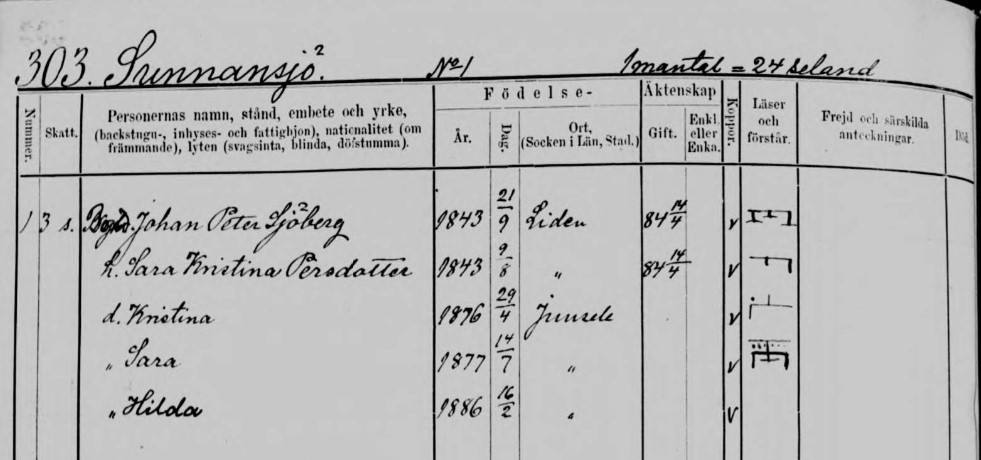 303. Sunnansjö.² No 1 1 mantal = 24 seland
Nummer. Skatt. Personernas namn, stånd, embete och yrke, (backstugu-, inhyses- och fattighjon), nationalitet (om främmande), lyten (svagsinta, blinda, döfstumma). Födelse- År. Dag. Ort, (Socken i Län, Stad.) Äktenskap Gift. Enkl. eller Enka. Koppor. Läser och förstår. Frejd och särskilda anteckningar.
1 3 s. Johan Peter Sjöberg² 1843 21/9 Liden 84 14/4 v
h. Sara Kristina Persdotter 1843 9/8 " 84 14/4 v
d. Kristina 1876 29/4 Junsele v
" Sara 1877 14/7 " v
" Hilda 1886 16/2 " v